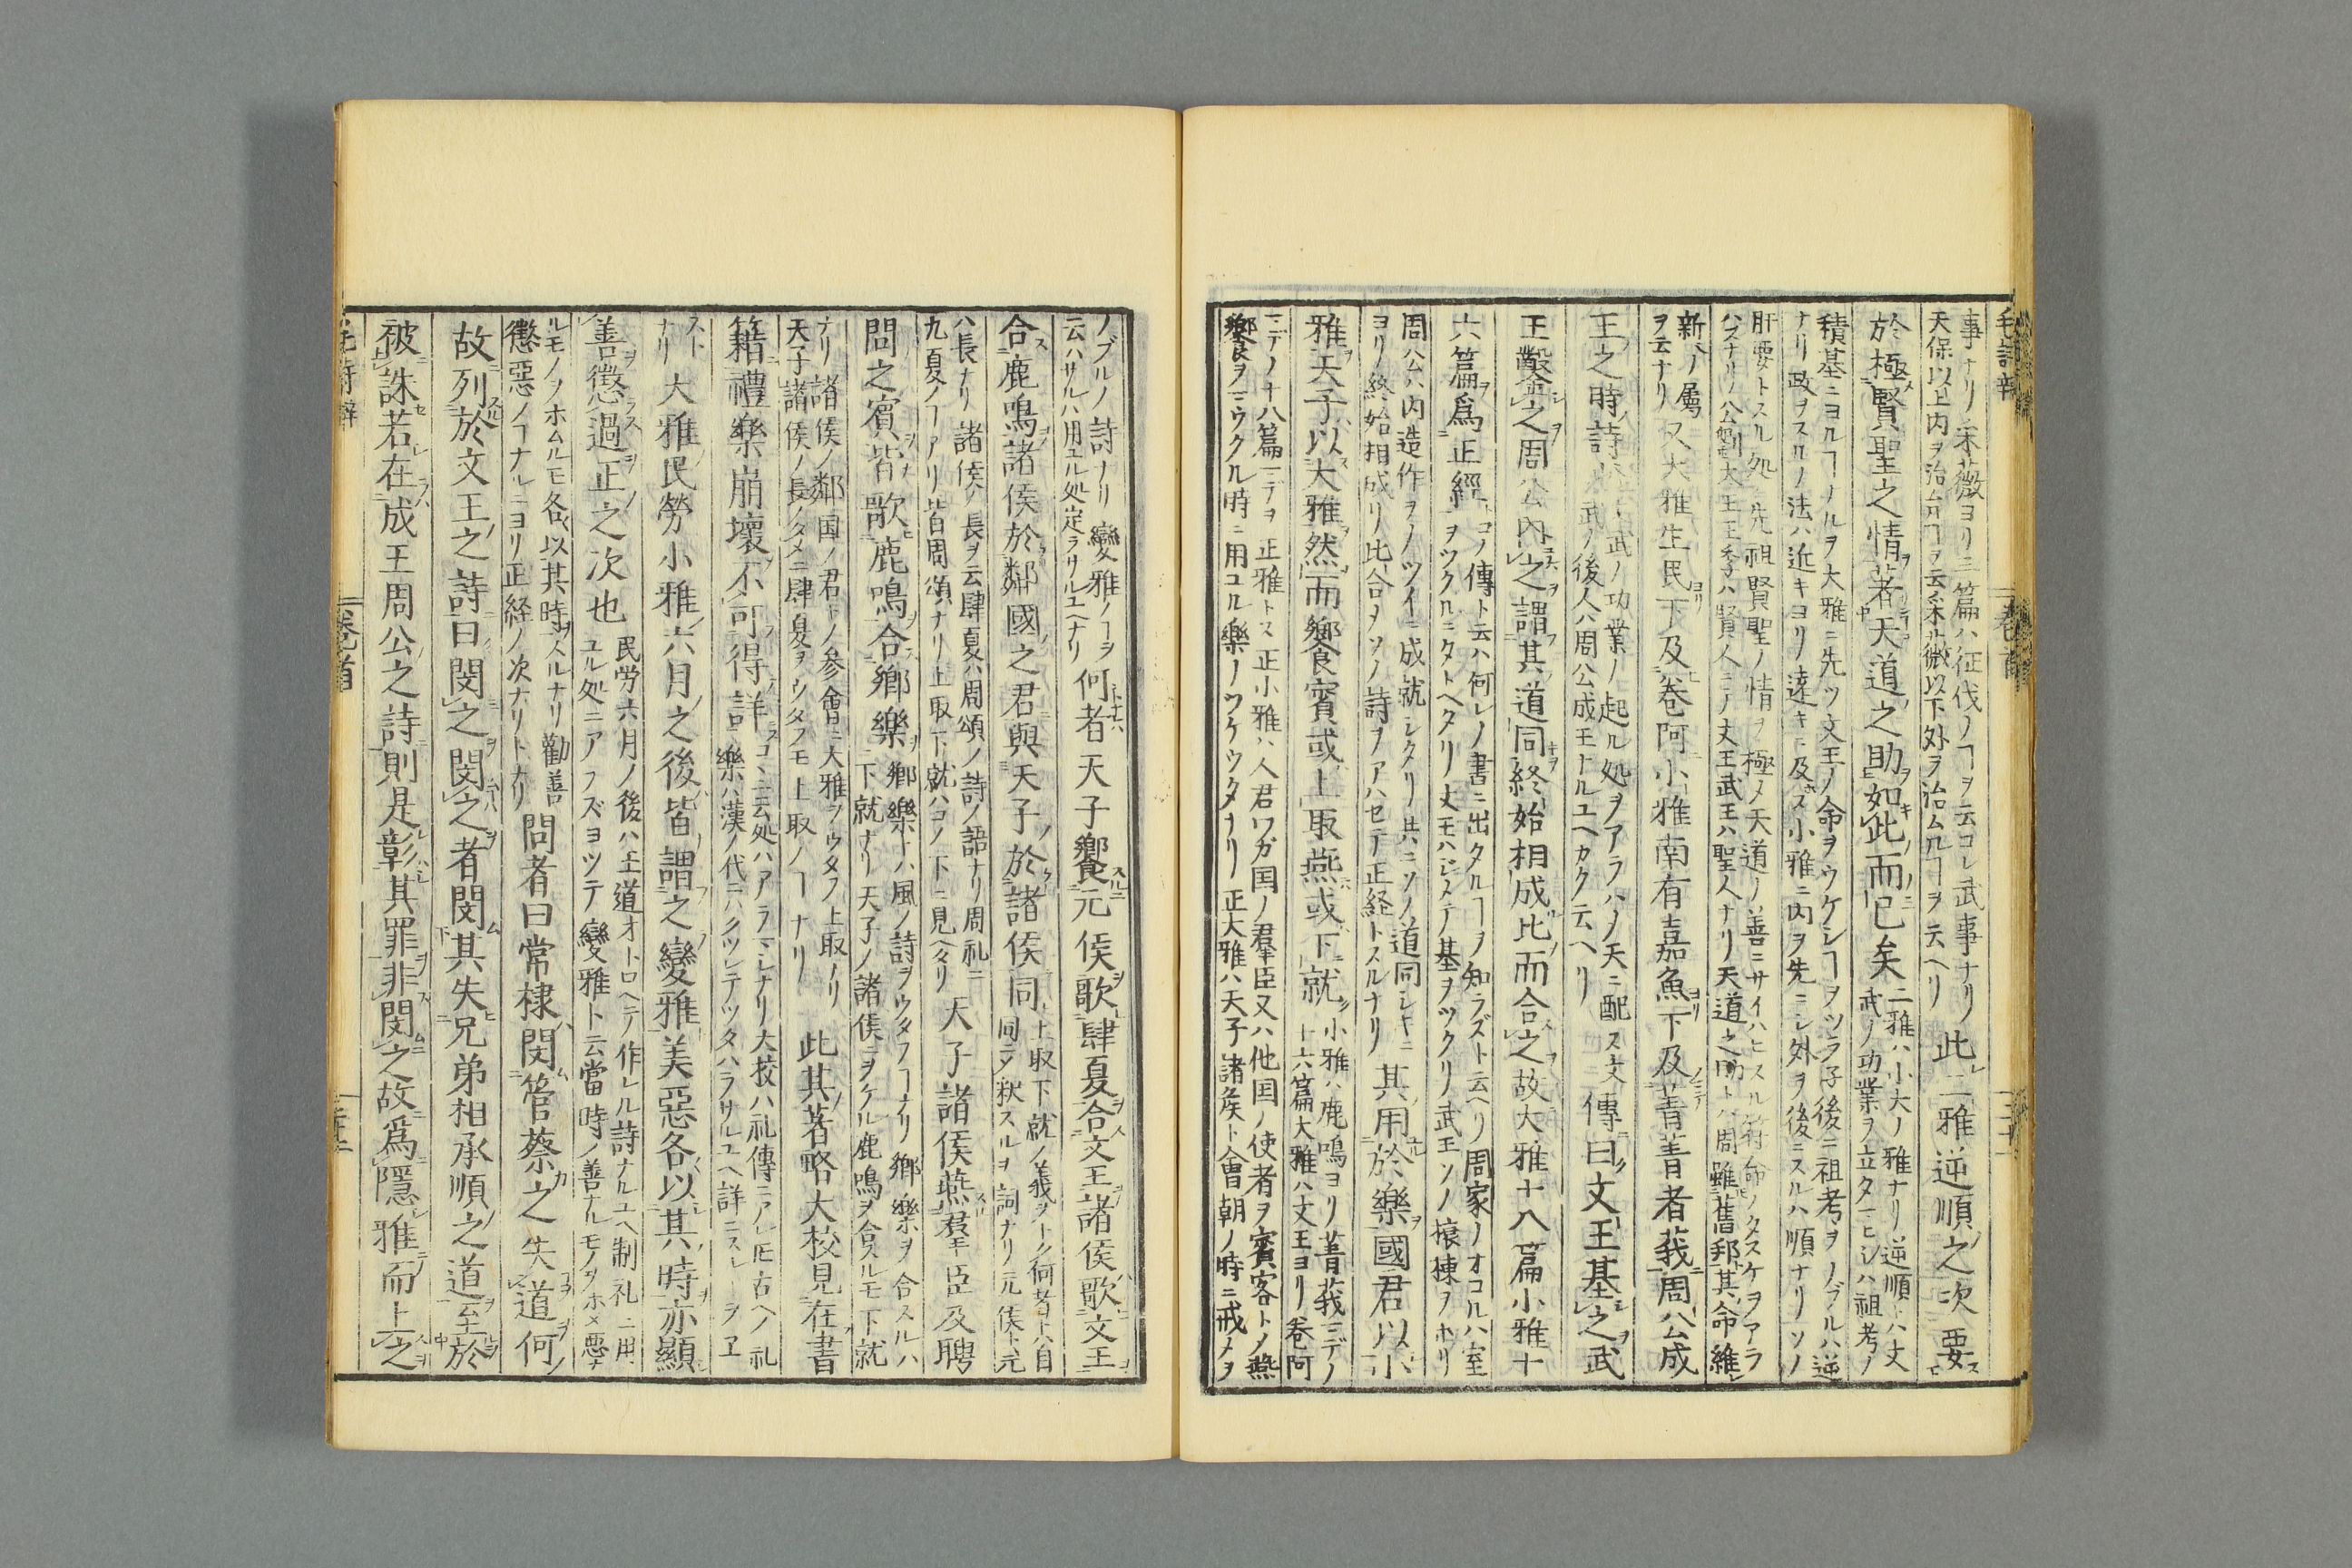 事ナリ采薇ヨリ三篇ハ征伐ノヿヲ云コレ武事ナリ
天保以上内ヲ治ムルヿヲ云采薇以下外ヲ治ムルヿヲ云ヘリ
此二雅逆順之次要
於極賢聖之情著天道之助如此而已矣
二雅ハ小大ノ雅ナリ逆順ハ文
武ノ功業ヲ立タマヒシハ祖考ノ
積基ニヨルヿナルヲ大雅ニ先ツ文王ノ命ヲウケシヿヲツラ子後ニ祖考ヲノブルハ逆
ナリ政ヲスルノ法ハ近キヨリ遠キニ及ス小雅ニ内ヲ先ニシ外ヲ後ニスルハ順ナリソノ
肝要トスル処先祖賢聖ノ情ヲ極メ天道ノ善ニサイハヒスル符命ノタスケヲアラ
ハスナリ公劉大王王季ハ賢人ニノ文王武王ハ聖人ナリ天道之助トハ周雖舊邦其命維
新ノ属
ヲ云ナリ
又大雅生民下及卷阿小雅南有嘉魚下及菁菁者莪周公成
王之時詩
文武ノ功業ノ起ル処ヲアラハノ天ニ配ス文
武ノ後人ハ周公成王ナルユヘカク云ヘリ
傳曰文王基之武
王鑿之周公內之謂其道同終始相成比而合之故大雅十八篇小雅十
六篇爲正經
コノ傳ト云ハ何レノ書ニ出タルヿヲ知ラズト云ヘリ周家ノオコルハ室
ヲツクルニタトヘタリ文王ハジメテ基ヲツクリ武王ソノ榱棟ヲホリ
周公ハ内造作ヲノツイニ成就シタリ共ニソノ道同シキニ
ヨリ終始相成リ比合ヲソノ詩ヲアハセテ正経トスルナリ
其用於樂國君以小
雅天子以大雅然而饗賓或上取燕或下就
小雅ハ鹿鳴ヨリ菁莪マデノ
十六篇大雅ハ文王ヨリ卷阿
マデノ十八篇マデヲ正雅トス正小雅ハ人君ワガ国ノ羣臣又ハ他国ノ使者ヲ賓客トノ燕
饗ヲマウクル時ニ用ユル樂ノツケウタナリ正大雅ハ天子諸侯ト會朝ノ時ニ戒メヲ
ノブルノ詩ナリ變雅ノヿヲ
云ハサルハ用ユル処定ラサルユヘナリ
何者天子饗元侯歌肆夏合文王諸侯歌文王
合鹿鳴諸侯於鄰國之君與天子於諸侯同
上取下就ノ義ヲトク何者トハ自
同ラ釈スルヲ詞ナリ元侯ト元
ハ長ナリ諸侯ノ長ヲ云肆夏ハ周頌ノ詩ノ語ナリ周礼ニ
九夏ノヿアリ皆周頌ナリ上取下就ハコノ下ニ見ヘタリ
天子諸侯燕羣臣及聘
問之賓皆歌鹿鳴合鄉樂
鄉樂トハ風ノ詩ヲウタフヿナリ鄉樂ヲ合スルハ
下就ナリ天子ノ諸侯ニヲケル鹿鳴ヲ合スルモ下就
ナリ諸侯ノ鄰国ノ君トノ参會ニ大雅ヲウタフ上取ノリ
天子諸侯ノ長ノタメニ肆夏ヲウタフモ上取ノヿナリ
此其著略大校見在書
籍禮樂崩壞不可得詳
コヽニ云処ハアラマシナリ大挍ハ礼傳ニアレ𪜈古ヘノ礼
樂ハ漢ノ代ニハクツレテツタハラサルユヘ詳ニスレーヲヱ
スト
ナリ
大雅民勞小雅六月之後皆謂之變雅美惡各以其時亦顯
善懲過正之次也
民労六月ノ後ハ王道オトロヘテ作レル詩ナルユヘ制礼ニ用
ユル処ニアラズヨツテ變雅ト云當時ノ善ナルモノヲホメ悪ナ
ルモノヲホムルモ各以其時ヲスルナリ勸善
懲惡ノヿナルニヨリ正経ノ次ナリトナリ
問者曰常棣閔管蔡之失道何
故列於文王之詩曰閔之閔之者閔其失兄弟相承順之道至於
被誅若在成王周公之詩則是彰其罪非閔之故爲隱雅而上之
卷首